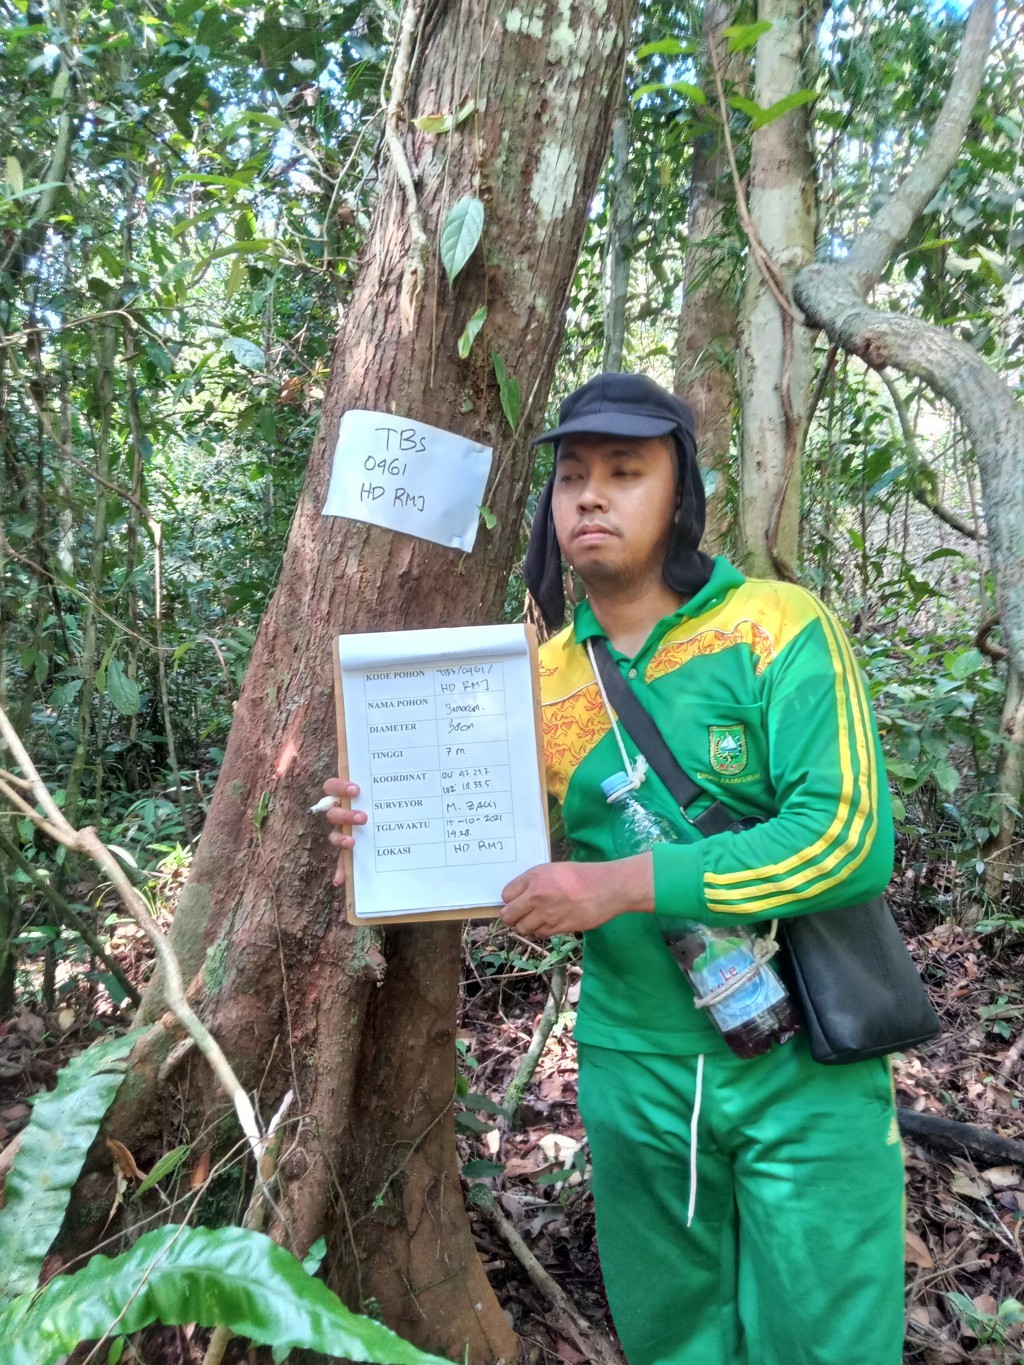 TBS
0461
HD RMJ
KODE POHON TBS/0461/
HD RMJ
NAMA POHON
DIAMETER
TINGGI 7 m
KOORDINAT 00 47 23,7
102° 18 33,5
SURVEYOR M. ZAKI
TGL/WAKTU 15-10-2021
14.28.
LOKASI HD RMJ
Le